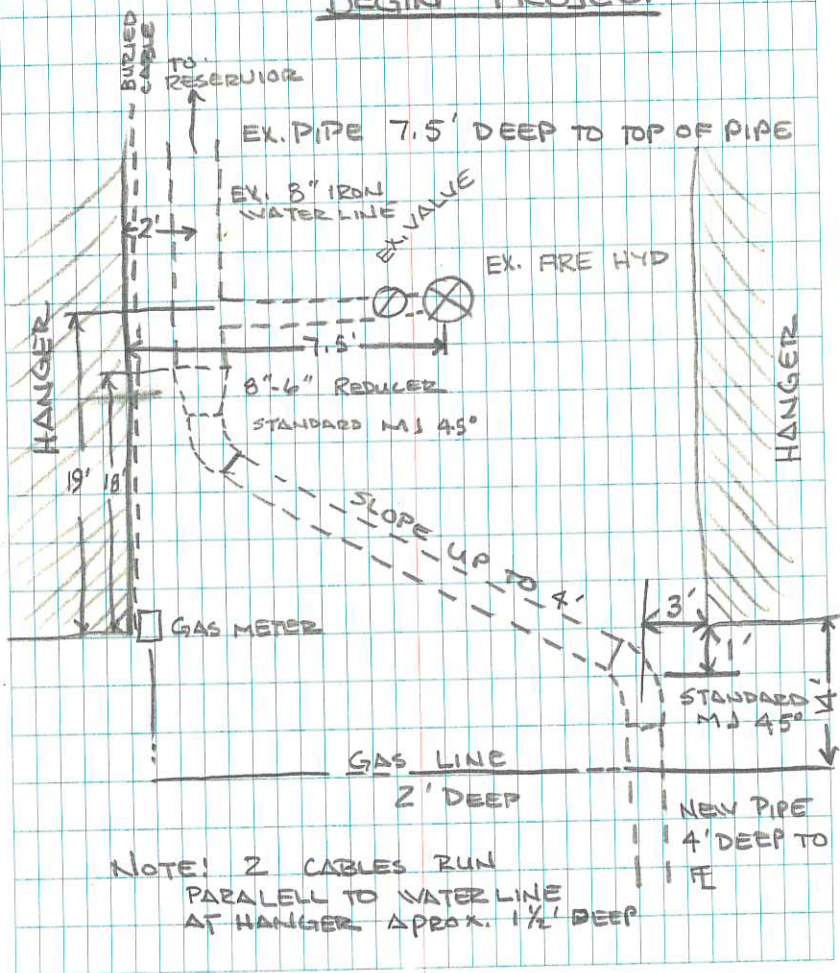 BEGIN PROJECT
BURIED
CABLE
TO
RESERVIOR
EX. PIPE 7.5' DEEP TO TOP OF PIPE
EX. 8" IRON
WATER LINE
2'
EX. VALVE
EX. FIRE HYD
HANGER
HANGER
7.5'
8"-6" REDUCER
STANDARD MJ 45°
19' 18'
SLOPE UP TO 4'
GAS METER
3'
1'
STANDARD
MJ 45°
4'
GAS LINE
2' DEEP
NEW PIPE
4' DEEP TO
NOTE! 2 CABLES RUN
PARALELL TO WATER LINE
AT HANGER APROX. 1½' DEEP